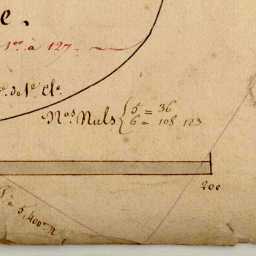 e.
1er. à 127.
do. 1e. Cle.
Nos. Nuls { 5 = 36
6 = 108 123
200
1 à 5,400